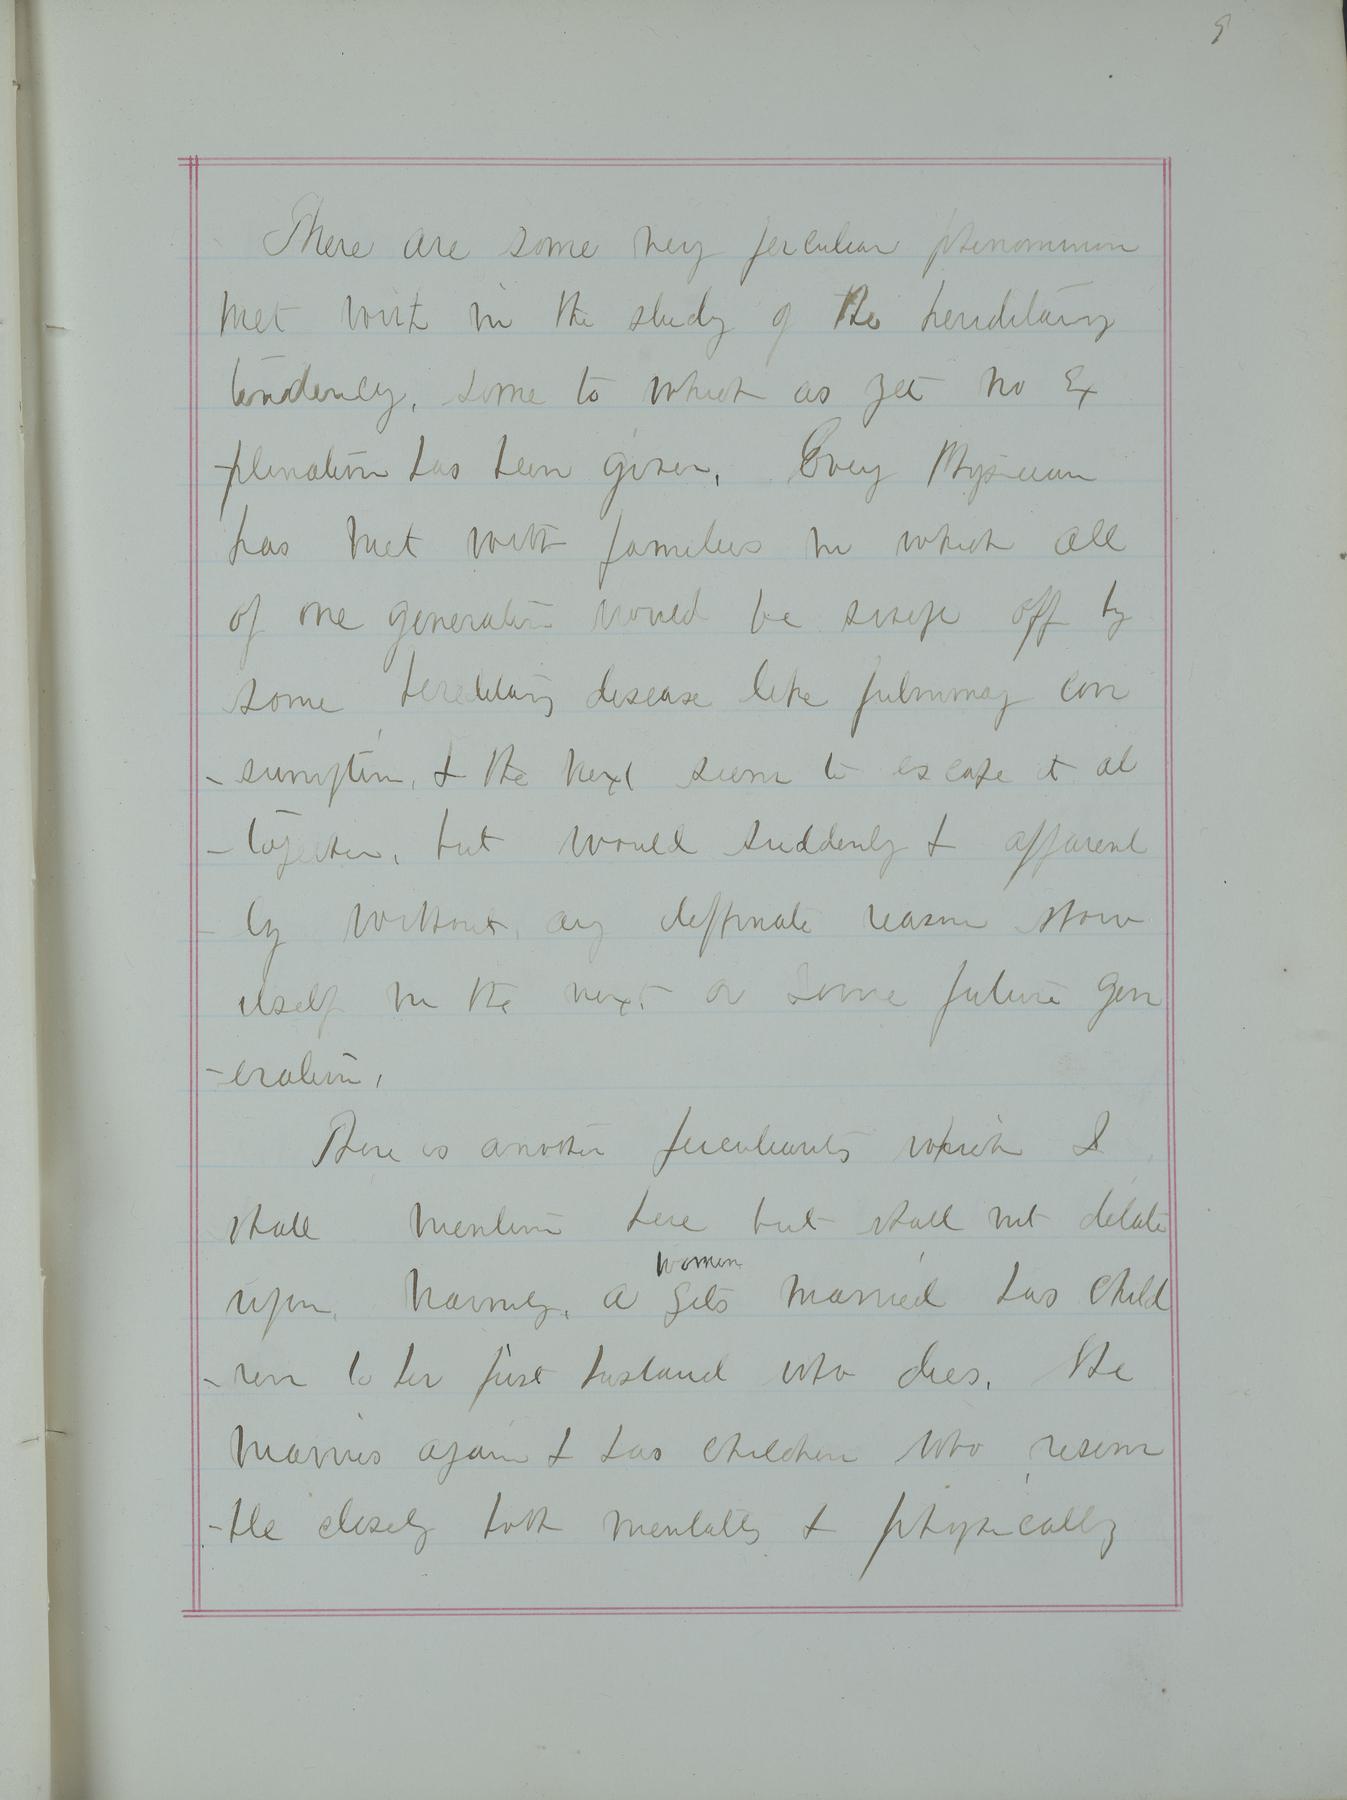 9
There are some very peculiar phenominon
met with in the study of the hereditary
tendency, some to which as yet no Ex
-plination has been given. Every Physician
has met with families in which all
of one generation would be swept off by
some hereditary disease like pulmonary con
-sumption, & the next seem to escape it al
-together, but would suddenly & apparent
-ly without any deffinate reason show
itself in the next or some future gen
-eration.
There is another peculiarity which I
shall mention here but shall not dilate
upon. Namely, a women gets married has child
-ren to her first husband who dies. She
marries again & has children who resem
-ble closely both mentally & physically